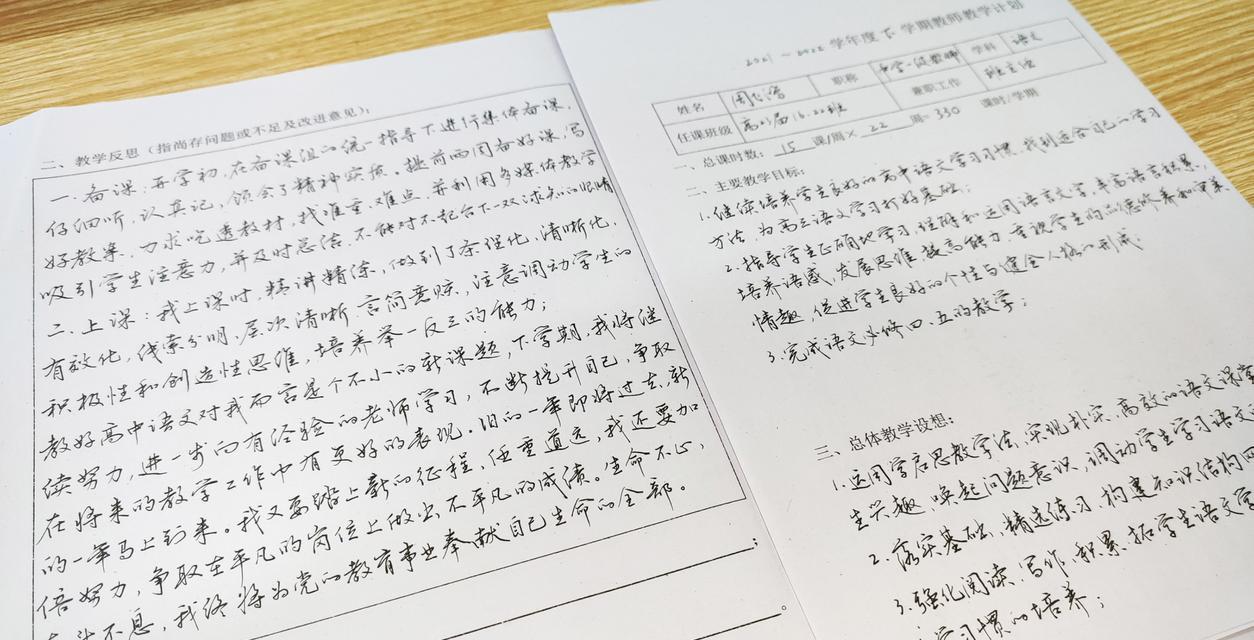 二、教学反思（指尚存问题或不足及改进意见）：
一.备课：开学初，在备课组的统一指导下进行集体备课，
仔细听，认真记，领会了精神实质。提前两周备好课，写
好教案，力求吃透教材，找准重、难点，并利用多媒体教学
吸引学生注意力，并及时总结，不能对不起台下一双双求知的眼睛
二.上课：我上课时，精讲精练，做到了条理化，清晰化，
有效化，线索分明，层次清晰，言简意赅，注意调动学生的
积极性和创造性思维，培养举一反三的能力；
教好高中语文对我而言是个不小的新课题，下学期，我将继
续努力，进一步向有经验的老师学习，不断提升自己，争取
在将来的教学工作中有更好的表现。旧的一年即将过去，新
的一年马上到来。我又要踏上新的征程，任重道远，我还要加
倍努力，争取在平凡的岗位上做出不平凡的成绩。生命不止，
不息，我终将为党的教育事业奉献自己生命的全部。
2021～2022学年度下学期教师教学计划
姓名 职称 中学一级教师 学科 语文
任课班级 高 届16.22班 兼职工作 班主任
一、总课时数：15课/周×22周=330课时/学期
二、主要教学目标：
1.继续培养学生良好的高中语文学习习惯，找到适合自己的学习
方法，为高三语文学习打好基础；
2.指导学生正确地学习、理解和运用语言文字，丰富语言积累，
培养语感，发展思维，提高能力，重视学生的品德修养和审美
情趣，促进学生良好的个性与健全人格的形成
3.完成语文必修四、五的教学；
三、总体教学设想：
1.运用学启思教学法，实现朴实、高效的语文课堂
生兴趣，唤起问题意识，调动学生学习语文
2.落实基础，精选练习，构建知识结构网
3.强化阅读、写作，积累，拓学生语文
学习习惯的培养；